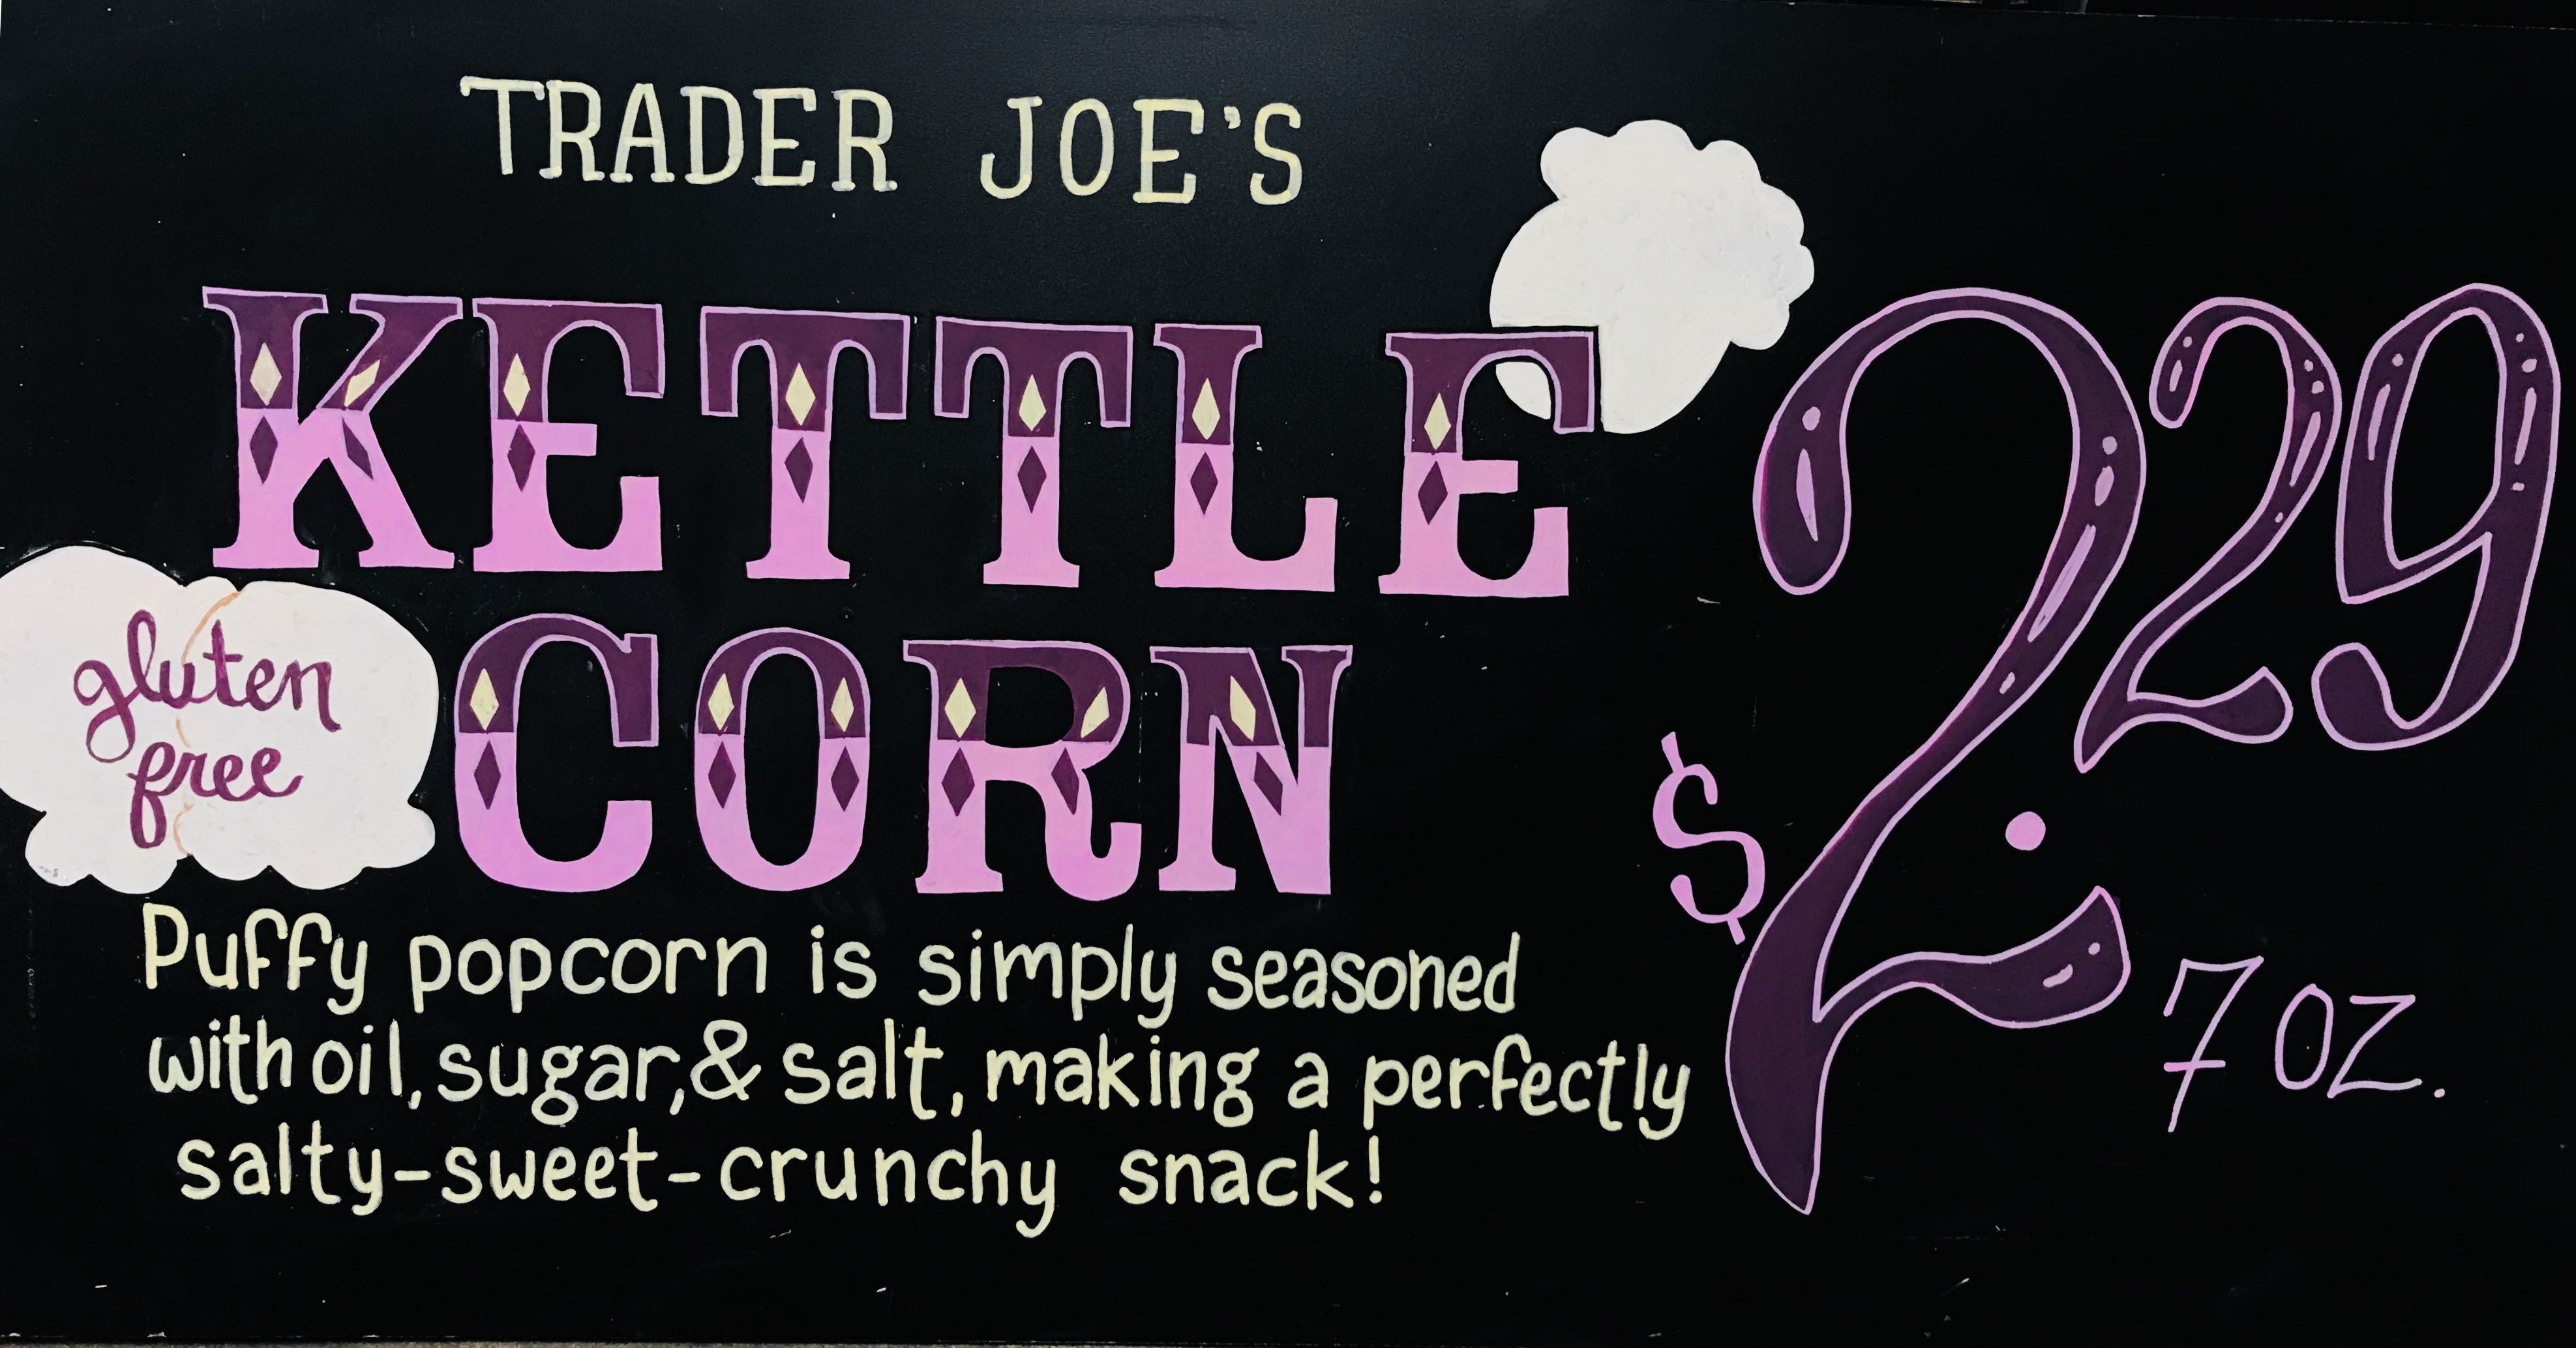 TRADER JOE'S
KETTLE
CORN
gluten
free
$2.29
7 oz.
Puffy popcorn is simply seasoned
with oil, sugar, & salt, making a perfectly
salty-sweet-crunchy snack!